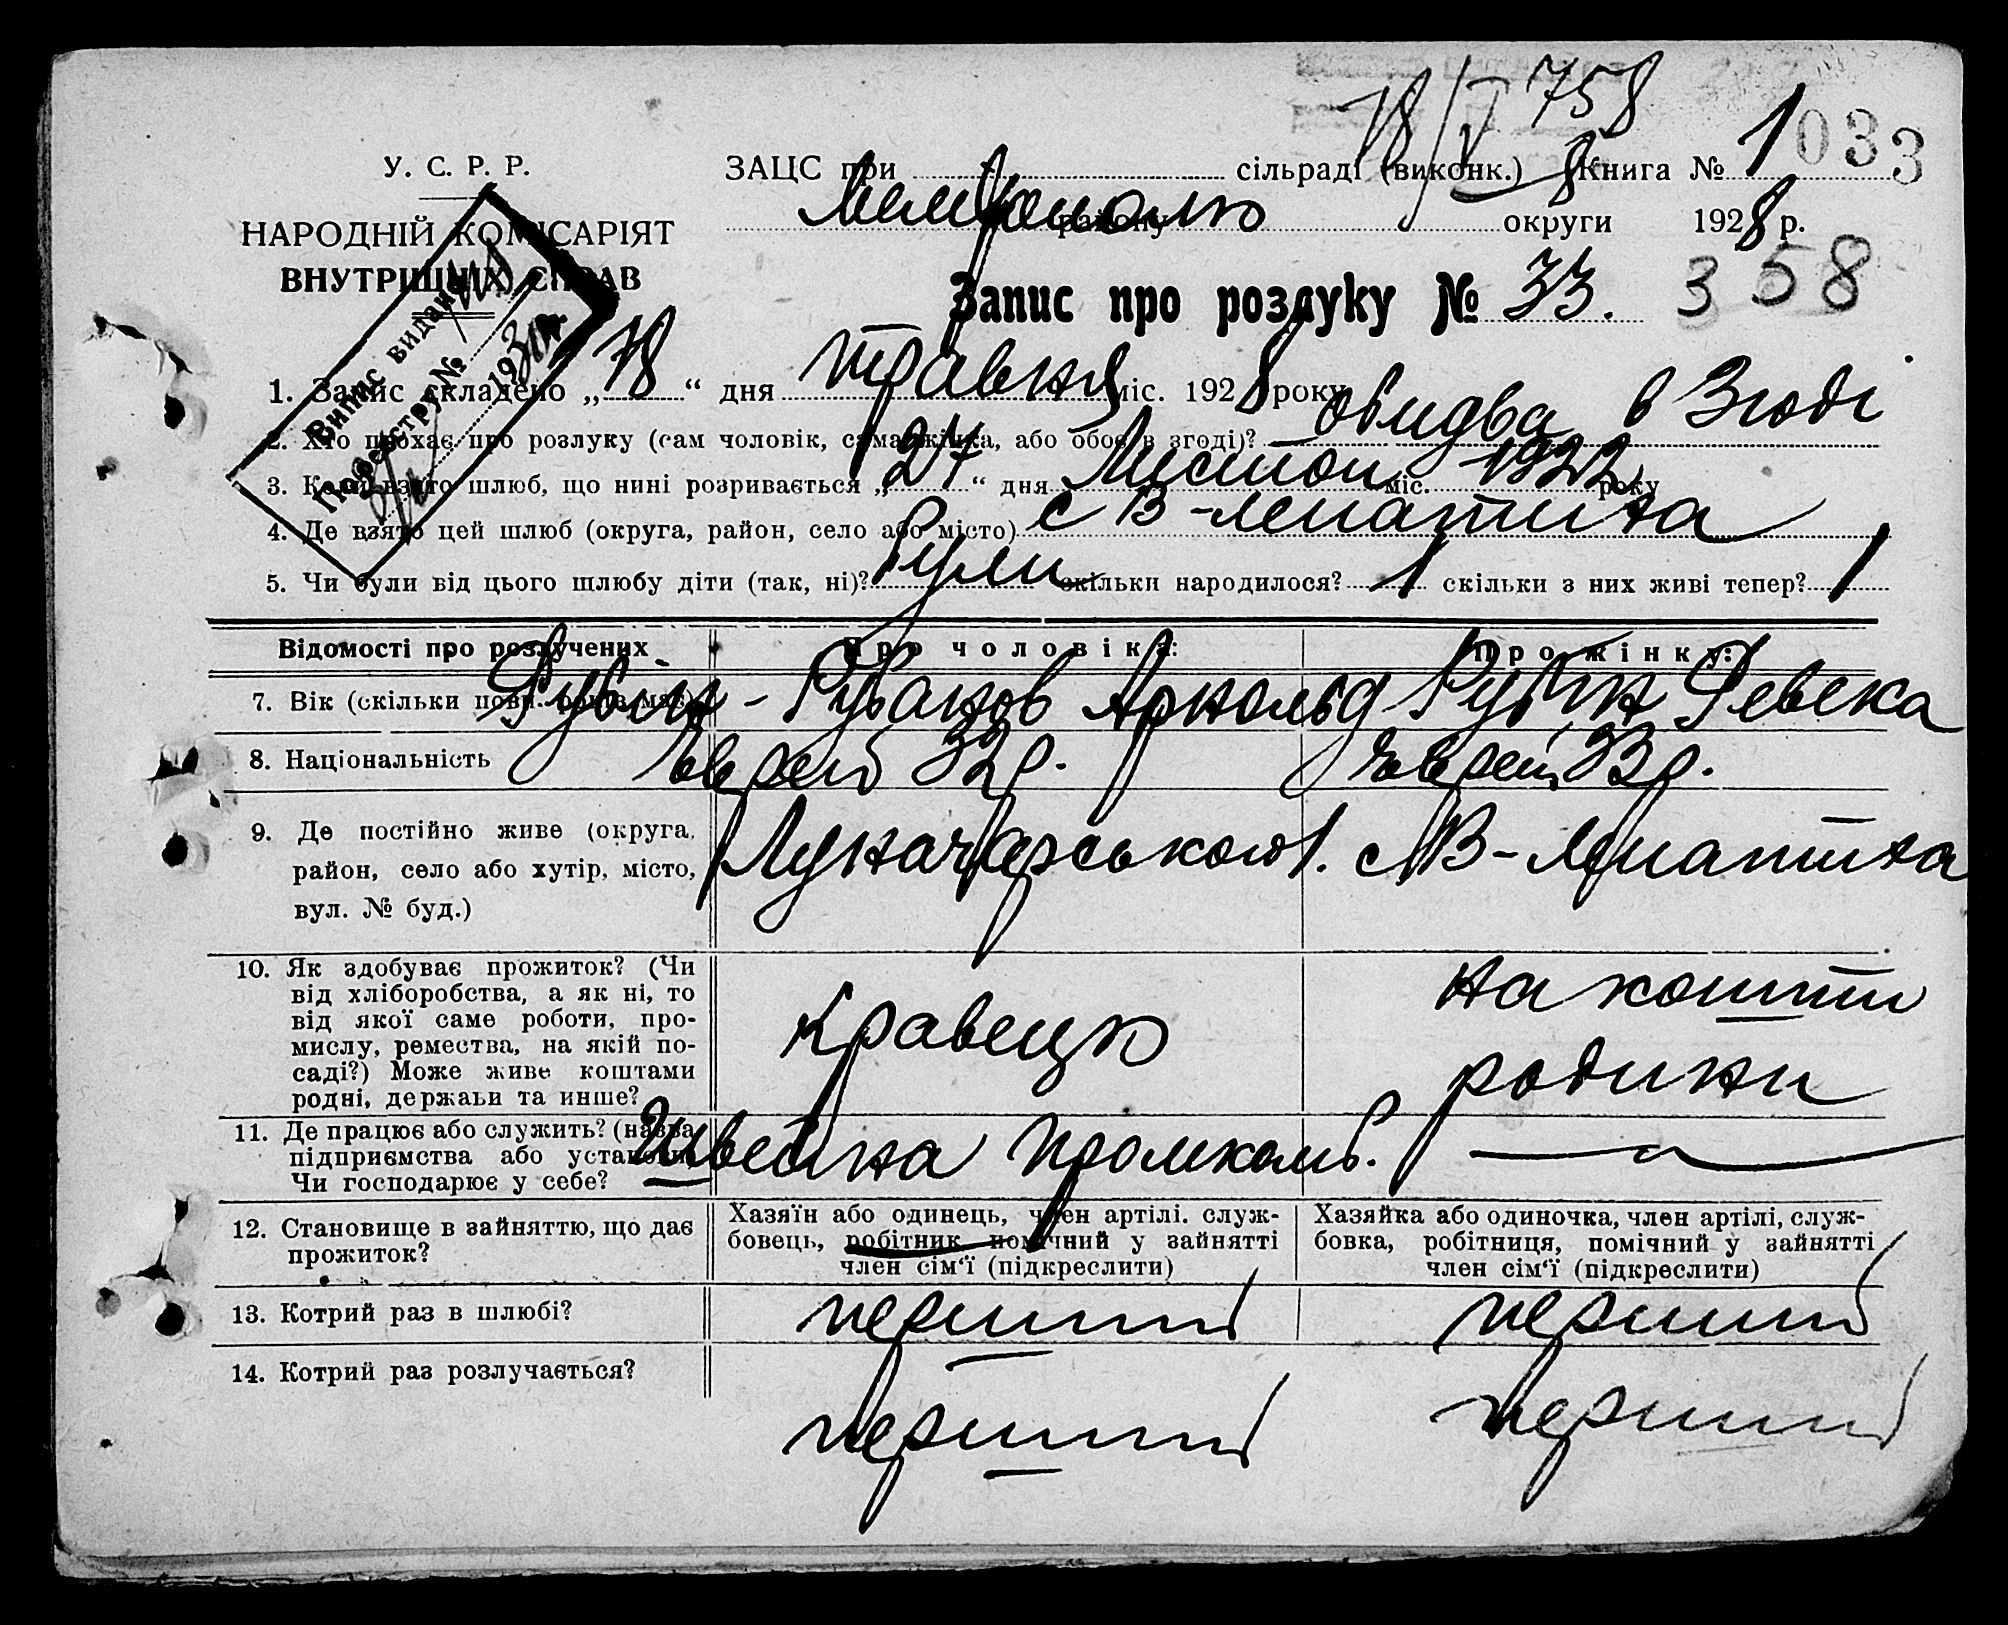 18/V 758
8
1033
У. С. Р. Р.
НАРОДНІЙ КОМІСАРІЯТ
ВНУТРІШНІХ СПРАВ
ЗАЦС при сільраді (виконк.) Книга № 1
району округи 1928 р.
Запис про розлуку № 33.
358
Випис видано
По реєстру №
193
1. Запис складено „18“ дня травня міс. 1928 року
2. Хто прохає про розлуку (сам чоловік, сама жінка, або обоє в згоді)? обидва в Згоді
3. Коли взято шлюб, що нині розривається „27“ дня Листоп міс. 1922 року
4. Де взято цей шлюб (округа, район, село або місто) с В-Лепатиха
5. Чи були від цього шлюбу діти (так, ні)? Були скільки народилося? 1 скільки з них живі тепер? 1
Відомості про розлучених Про чоловіка: Про жінку:
Рубін - Рубанов Арнольд Рубін Ревека
7. Вік (скільки повн. років має)
8. Національність Єврей 32р. Єврей 33р.
9. Де постійно живе (округа, Луначарського 1. с В-Лепатиха
район, село або хутір, місто,
вул. № буд.)
10. Як здобуває прожиток? (Чи на кошти
від хліборобства, а як ні, то
від якої саме роботи, про- Кравець
мислу, ремества, на якій по-
саді?) Може живе коштами родини
родні, держави та инше?
11. Де працює або служить? (назва Швейна Промкомб.
підприємства або установи
Чи господарює у себе?
12. Становище в зайняттю, що дає
прожиток?
Хазяїн або одинець, член артілі. служ-
бовець, робітник помічний у зайнятті
член сім'ї (підкреслити)
Хазяйка або одиночка, член артілі, служ-
бовка, робітниця, помічний у зайнятті
член сім'ї (підкреслити)
13. Котрий раз в шлюбі? перший перший
14. Котрий раз розлучається? перший перший